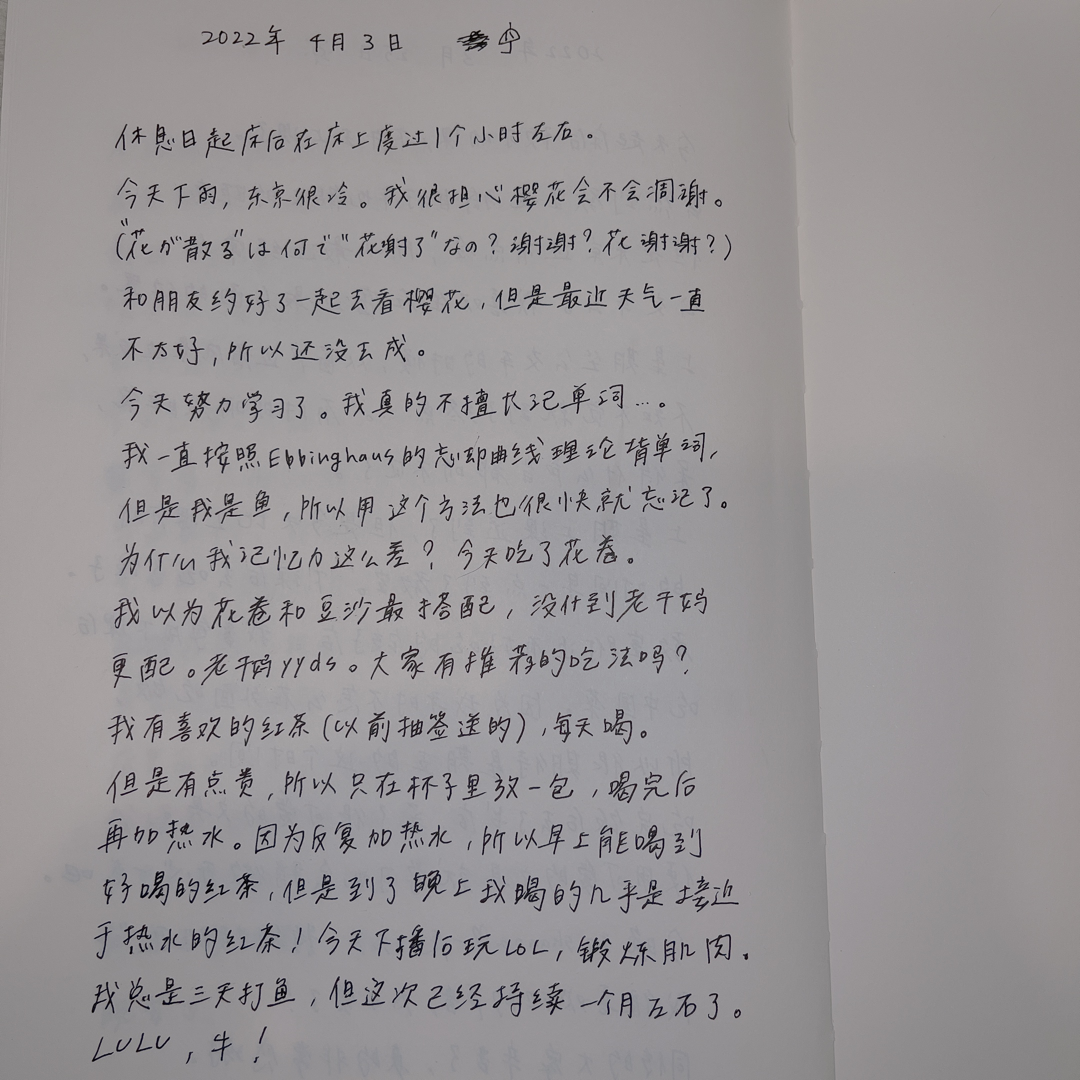 2022年 4月 3日
休息日起床后在床上度过1个小时左右。
今天下雨，东京很冷。我很担心樱花会不会凋谢。
(“花が散る”は何で“花謝了”なの？谢谢？花谢谢？)
和朋友约好了一起去看樱花，但是最近天气一直
不太好，所以还没去成。
今天努力学习了。我真的不擅长记单词…。
我一直按照Ebbinghaus的忘却曲线理论背单词，
但是我是鱼，所以用这个方法也很快就忘记了。
为什么我记忆力这么差？今天吃了花卷。
我以为花卷和豆沙最搭配，没什到老干妈
更配。老干妈yyds。大家有推荐的吃法吗？
我有喜欢的红茶(以前抽签送的)，每天喝。
但是有点贵，所以只在杯子里放一包，喝完后
再加热水。因为反复加热水，所以早上能喝到
好喝的红茶，但是到了晚上我喝的几乎是接近
于热水的红茶！今天下播后玩LOL，锻炼肌肉。
我总是三天打鱼，但这次已经持续一个月左右了。
LULU，牛！